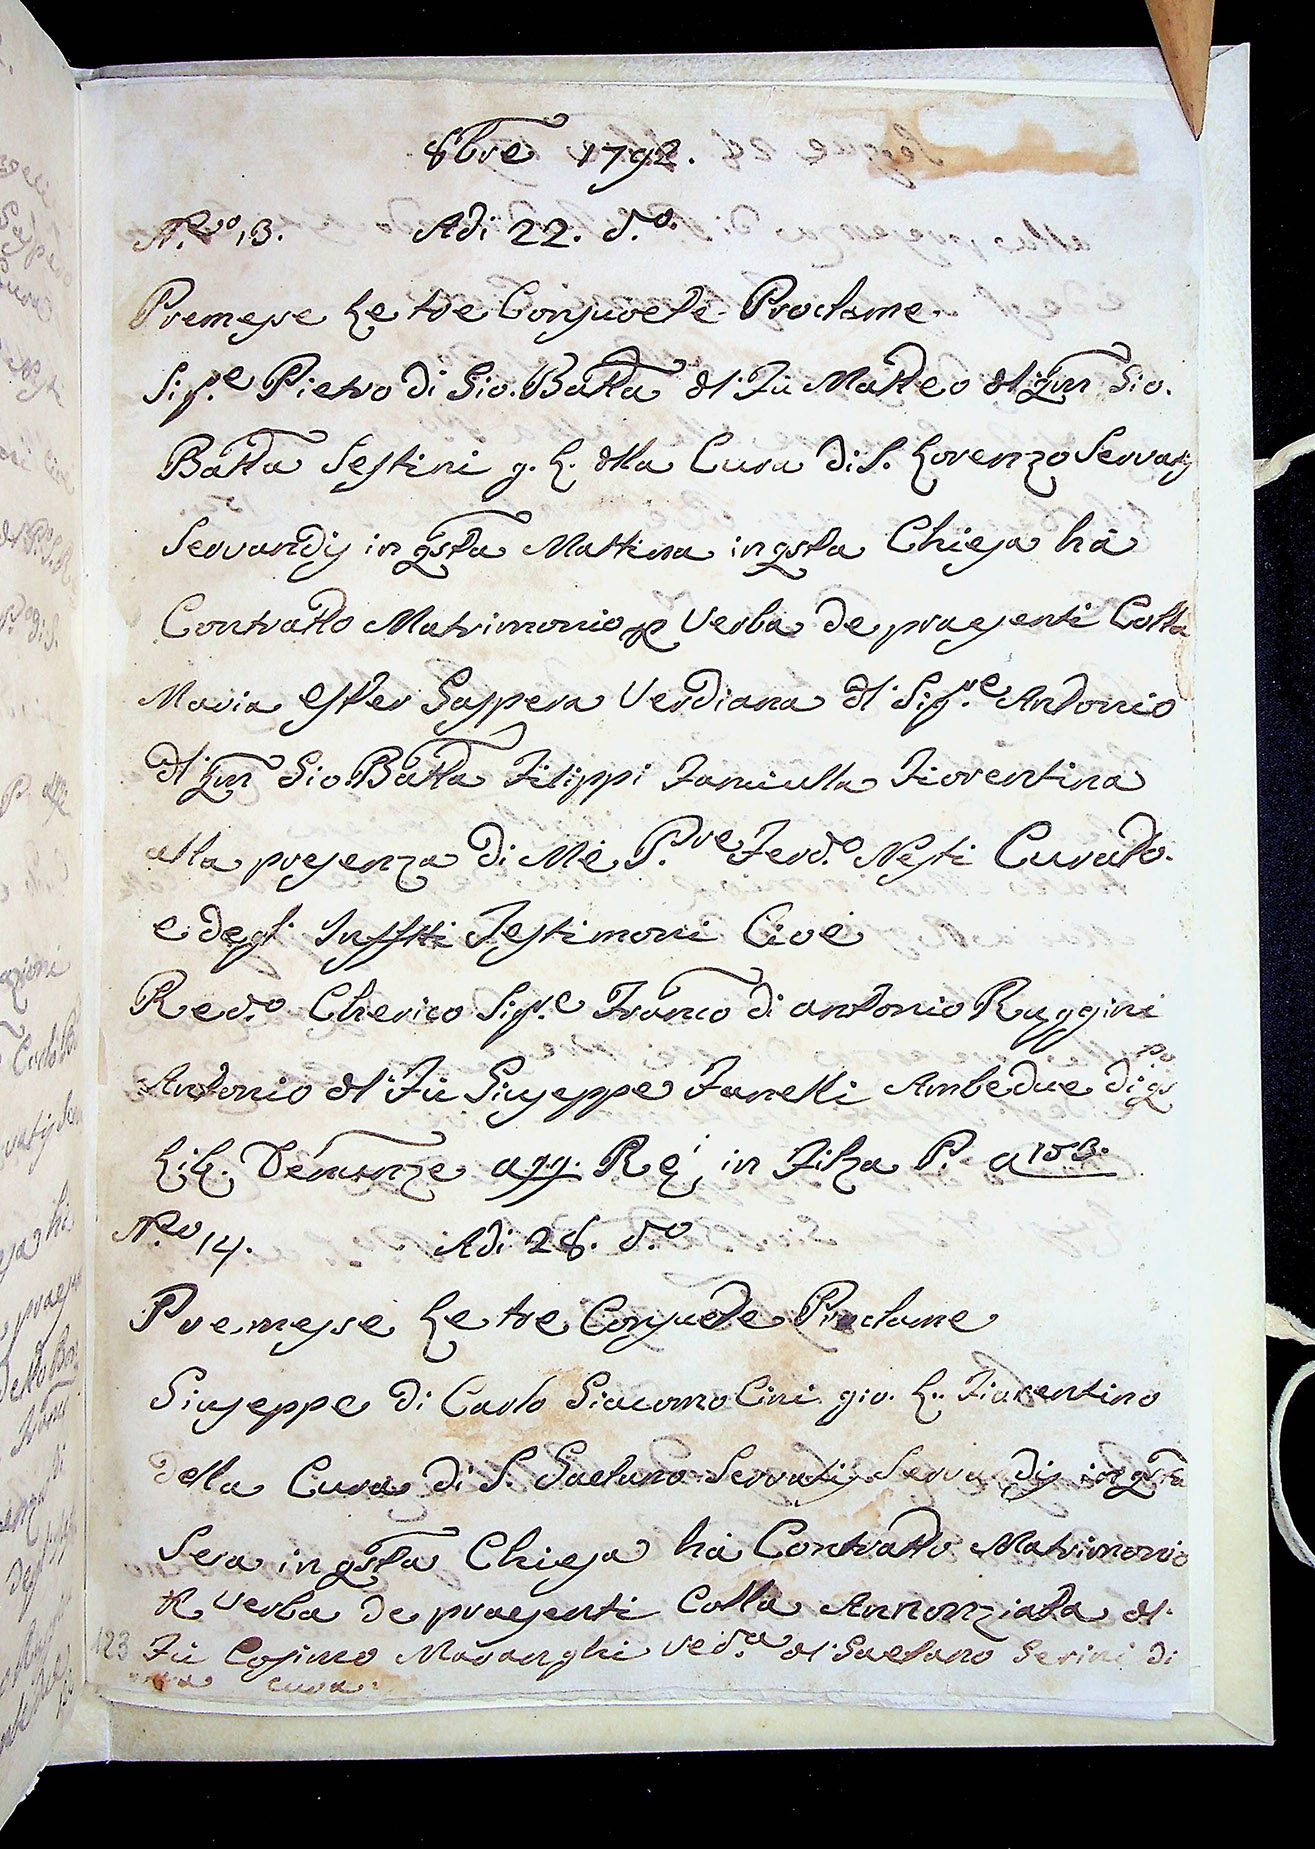 8bre 1792.
N.ro 13. Adi 22. d.o
Premesse Le tre Consuete Proclame
Sig.e Pietro di Gio. Batta dl Fù Matteo dl qm Gio.
Batta Sestini g. L. dlla Cura di S. Lorenzo Servatij
Servandij in qsta Mattina in qsta Chiesa hà
Contratto Matrimonio p Verba de praesenti Colla
Maria Ester Gasppera Verdiana dl Sig.re Antonio
dl qm Gio: Batta Filippi Fanciulla Fiorentina
alla presenza di Me P.re Ferd.o Nesti Curato.
e degl' Infftti Testimoni Cioè
Red.o Cherico Sig.e Franco di antonio Ruggini
Antonio dl Fù Giuseppe Fanelli Ambedue di qs
po
Lib. Denunze a 99. R in Filza P. a 103.
N.ro 14. Adi 28. d.o
Premesse Le tre Consuete Proclame
Giuseppe di Carlo Giacomo Cini gio. L. Fiorentino
della Cura di S. Gaetano Servatij Servadij in qsta
Sera in qsta Chiesa hà Contratto Matrimonio
p Verba de praesenti Colla Annonziata dl
123 Fù Cosimo Maranghi Ved.a dl Gaetano Serini di
cura